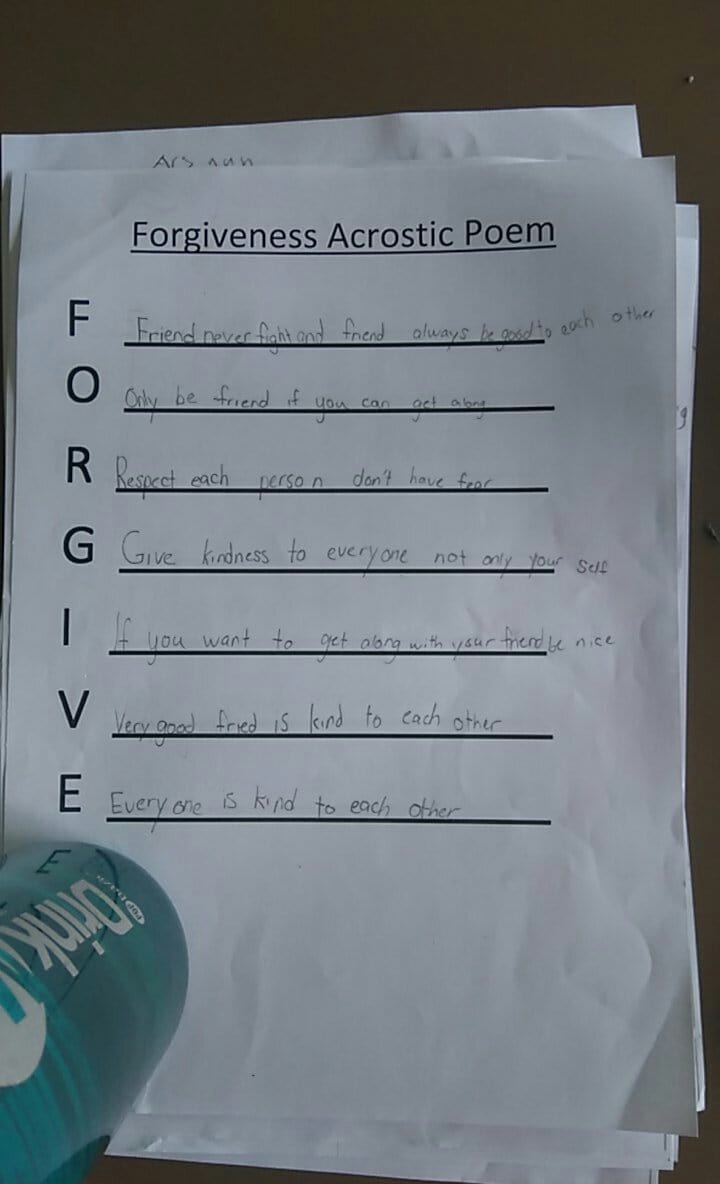 Forgiveness Acrostic Poem
F Friend never fight and friend always be good to each other
O Only be friend if you can get along
R Respect each person don't have fear
G Give kindness to everyone not only your self
I If you want to get along with your friend be nice
V Very good fried is kind to each other
E Every one is kind to each other
E
Drink